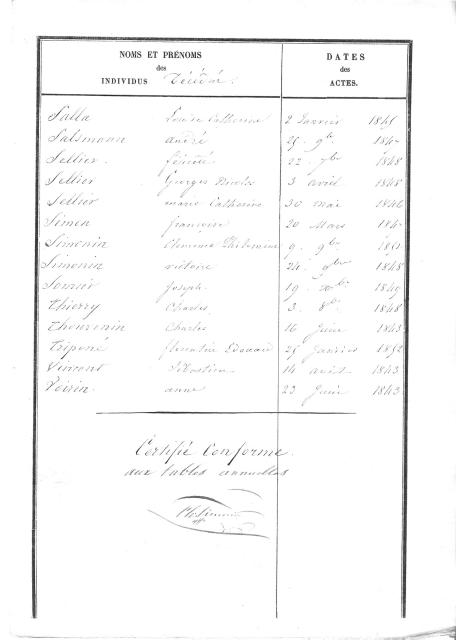 NOMS ET PRÉNOMS
des
INDIVIDUS
DATES
des
ACTES.
Salla Catherine 2 Janvier 1845
Salsmann André 25 9
Sellier félicité 22 7bre 1848
Sellier Georges Nicolas 3 avril 1848
Sellier marie Catherine 30 mai 1846
Simon françoise 20 Mars
Simonin Clémence 9 9bre
Simonin victoire 24 9bre 1848
Joseph 19 1849
Thierry Charles 3 8bre 1848
Thouvenin Charles 16 Juin 1843
Triponé florentin Edouard 25 Janvier 1852
Vimont Sébastien 14 avril 1843
Voirin anne 23 Juin 1843
Certifié Conforme
aux tables annuelles